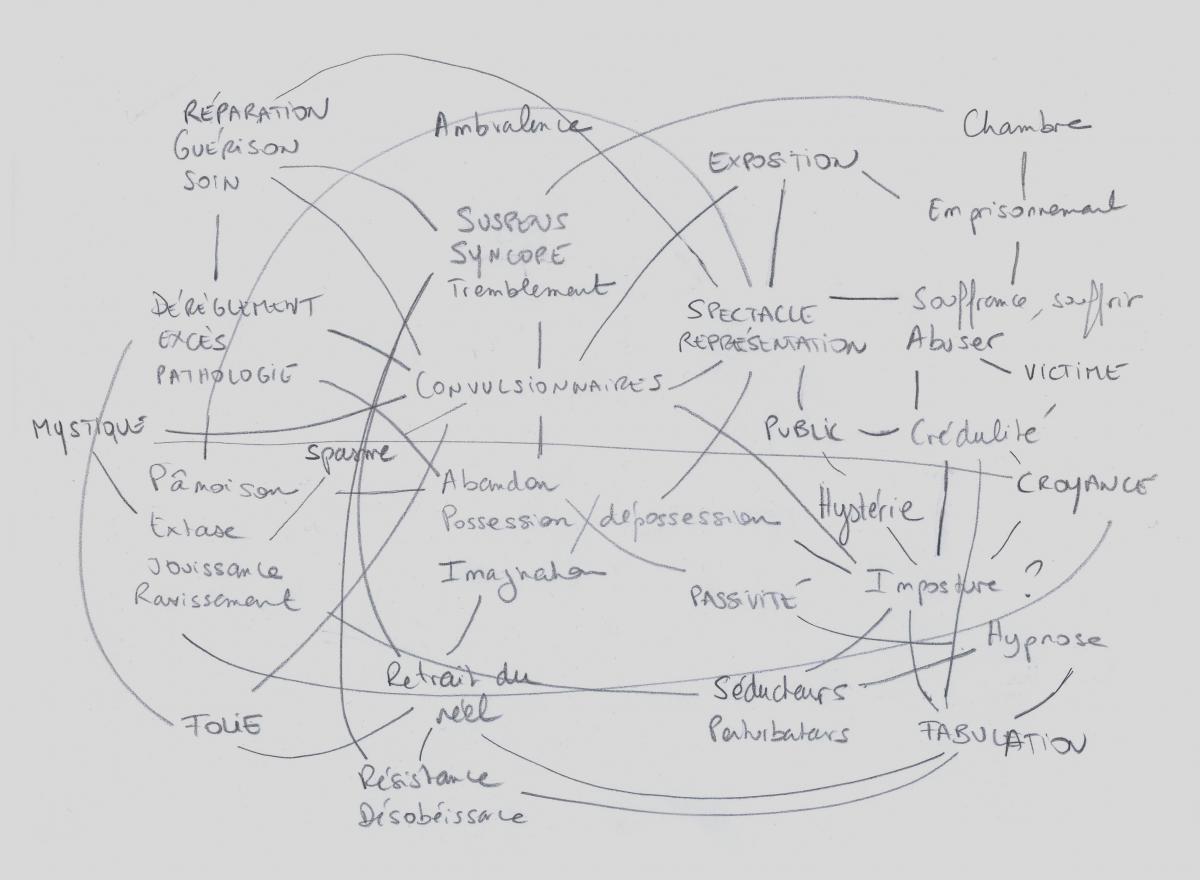 RÉPARATION
GUÉRISON
SOIN
Ambivalence
Chambre
EXPOSITION
Emprisonnement
SUSPENS
SYNCOPE
Tremblement
DÉRÈGLEMENT
EXCÈS
PATHOLOGIE
SPECTACLE
REPRÉSENTATION
Souffrance, souffrir
Abuser
VICTIME
CONVULSIONNAIRES
MYSTIQUE
spasme
PUBLIC
Crédulité
CROYANCE
Pâmoison
Extase
Jouissance
Ravissement
Abandon
Possession / dépossession
Imagination
Hystérie
PASSIVITÉ
Imposture ?
Hypnose
Retrait du
réel
Séducteurs
Perturbateurs
FOLIE
FABULATION
Résistance
Désobéissance